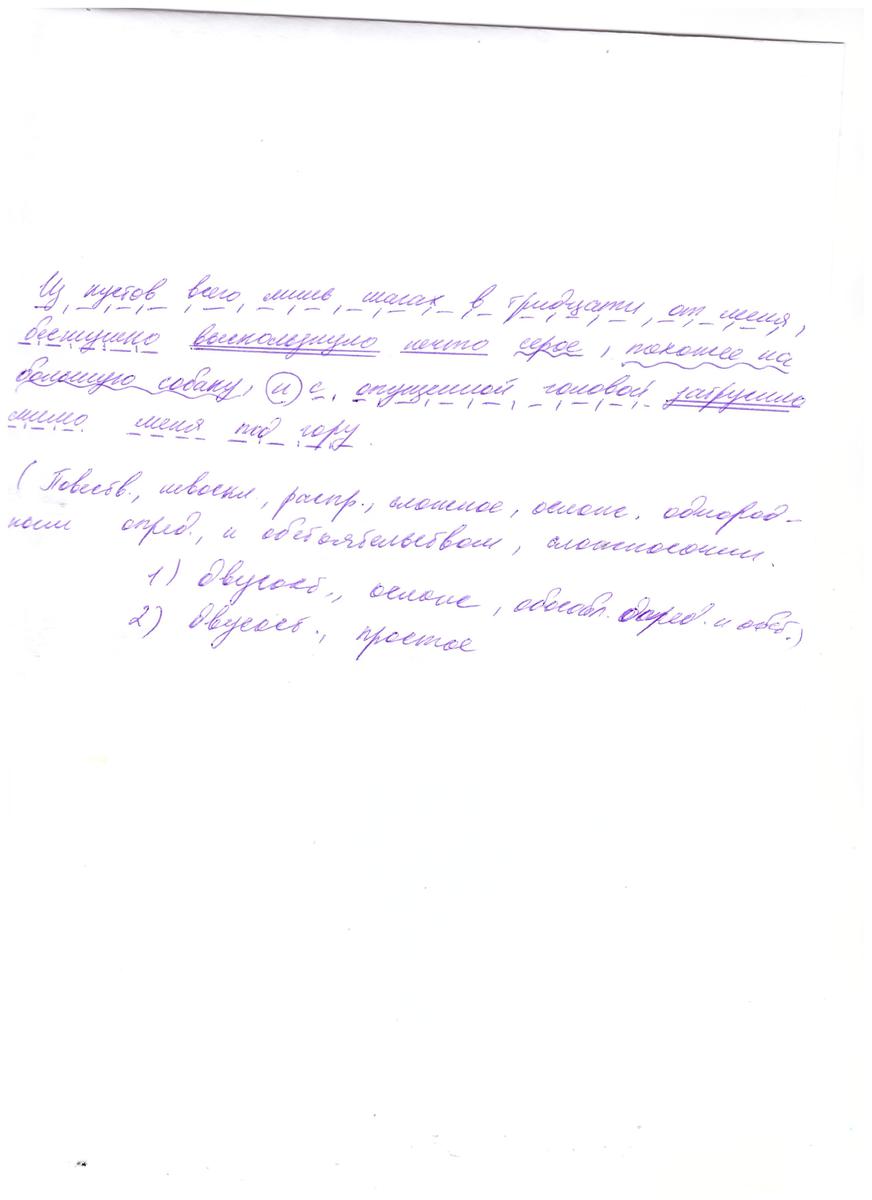 Из кустов всего лишь шагах в тридцати от меня,
бесшумно выскользнуло нечто серое, похожее на
большую собаку, и с опущенной головой затрусило
мимо меня под гору.
(Повеств., невоскл., распр., сложное, ослож. однород-
ными опред., и обстоятельством, сложносочин.
1) двусост., ослож, обособл. опред. и обст.)
2) двусост., простое